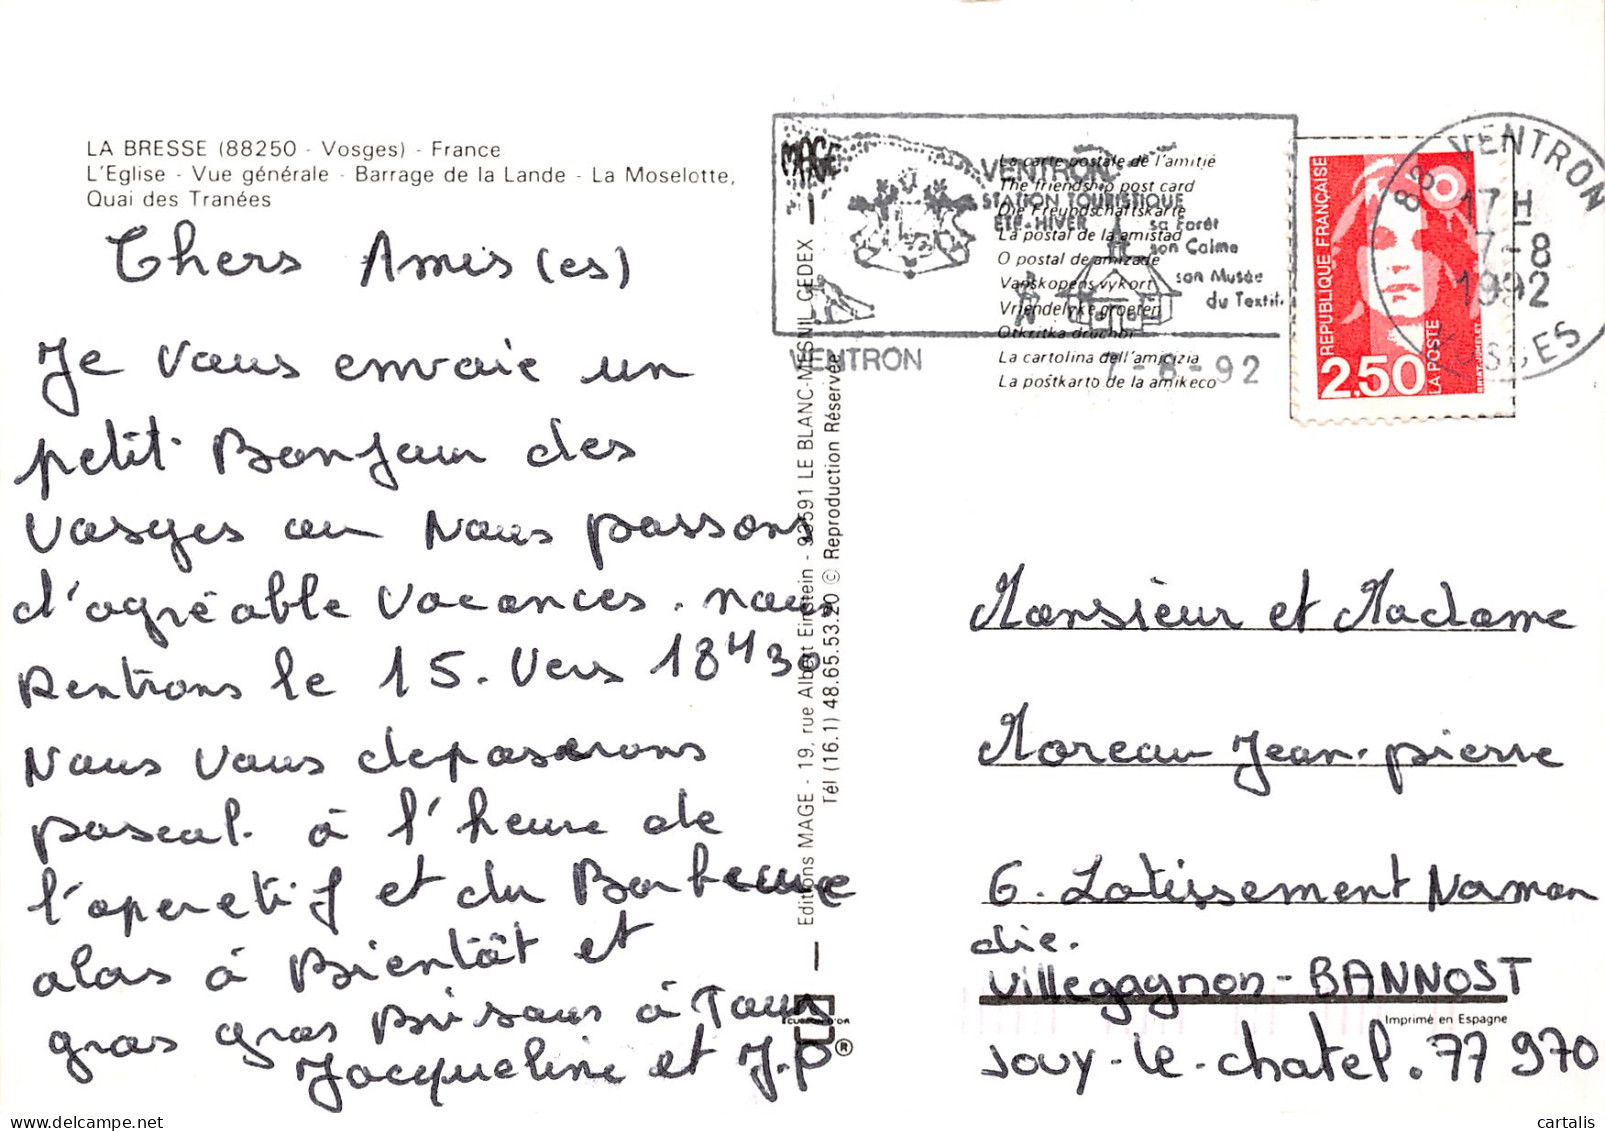 LA BRESSE (88250 - Vosges) - France
L'Eglise - Vue générale - Barrage de la Lande - La Moselotte,
Quai des Tranées
Chers Amis (es)
Je vous envoie un
petit Bonjour des
Vosges ou Nous passons
d'agréable Vacances. nous
Rentrons le 15. Vers 18H30
Nous vous deposerons
pascal. à l'heure de
l'aperetif et du Barbecue
alors à Bientôt et
gros gros Bisous à Tous
Jacqueline et J.P
Editions MAGE - 19, rue Albert Einstein - 93591 LE BLANC-MESNIL CEDEX
Tél (16.1) 48.65.53.20 © Reproduction Réservée
MAGE
VENTRON
STATION TOURISTIQUE
ETE-HIVER
sa Forêt
son Calme
son Musée
du Textile
VENTRON
7-8-92
La carte postale de l'amitié
The friendship post card
Die Freundschaftskarte
La postal de la amistad
O postal de amizade
Vanskapens vykort
Vriendelyke groeten
Otkritka druchbi
La cartolina dell'amicizia
La postkarto de la amikeco
REPUBLIQUE FRANÇAISE
2,50
LA POSTE
88 VENTRON
17 H
7-8
1992
VOSGES
Monsieur et Madame
Moreau Jean-pierre
6. Lotissement Norman
die.
Villegagnon-BANNOST
Imprimé en Espagne
JOUY-le-chatel. 77 970
®
cartalis